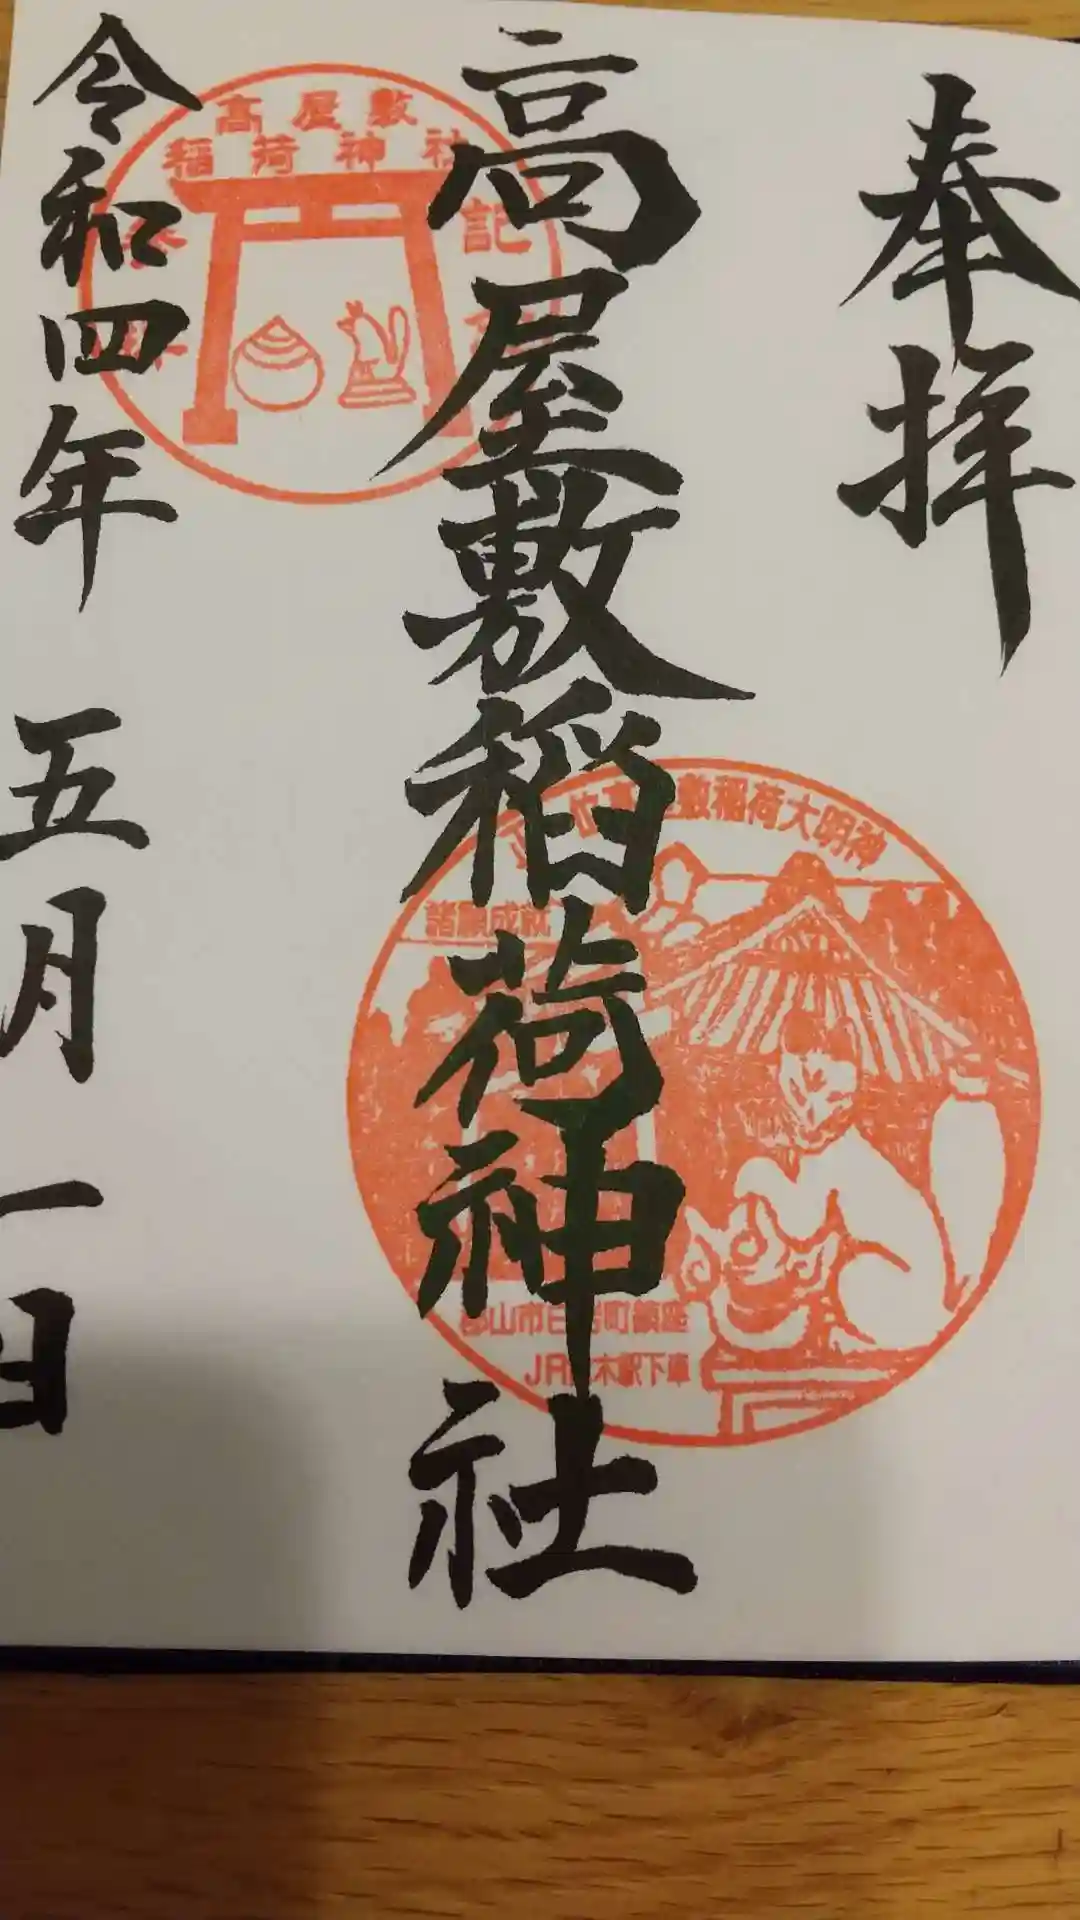 奉拝
高屋敷稲荷神社
令和四年 五月 一日
高屋敷
稲荷神社
記
敷稲荷大明神
諸願成就
郡山市白岩町鎮座
JR 木駅下車